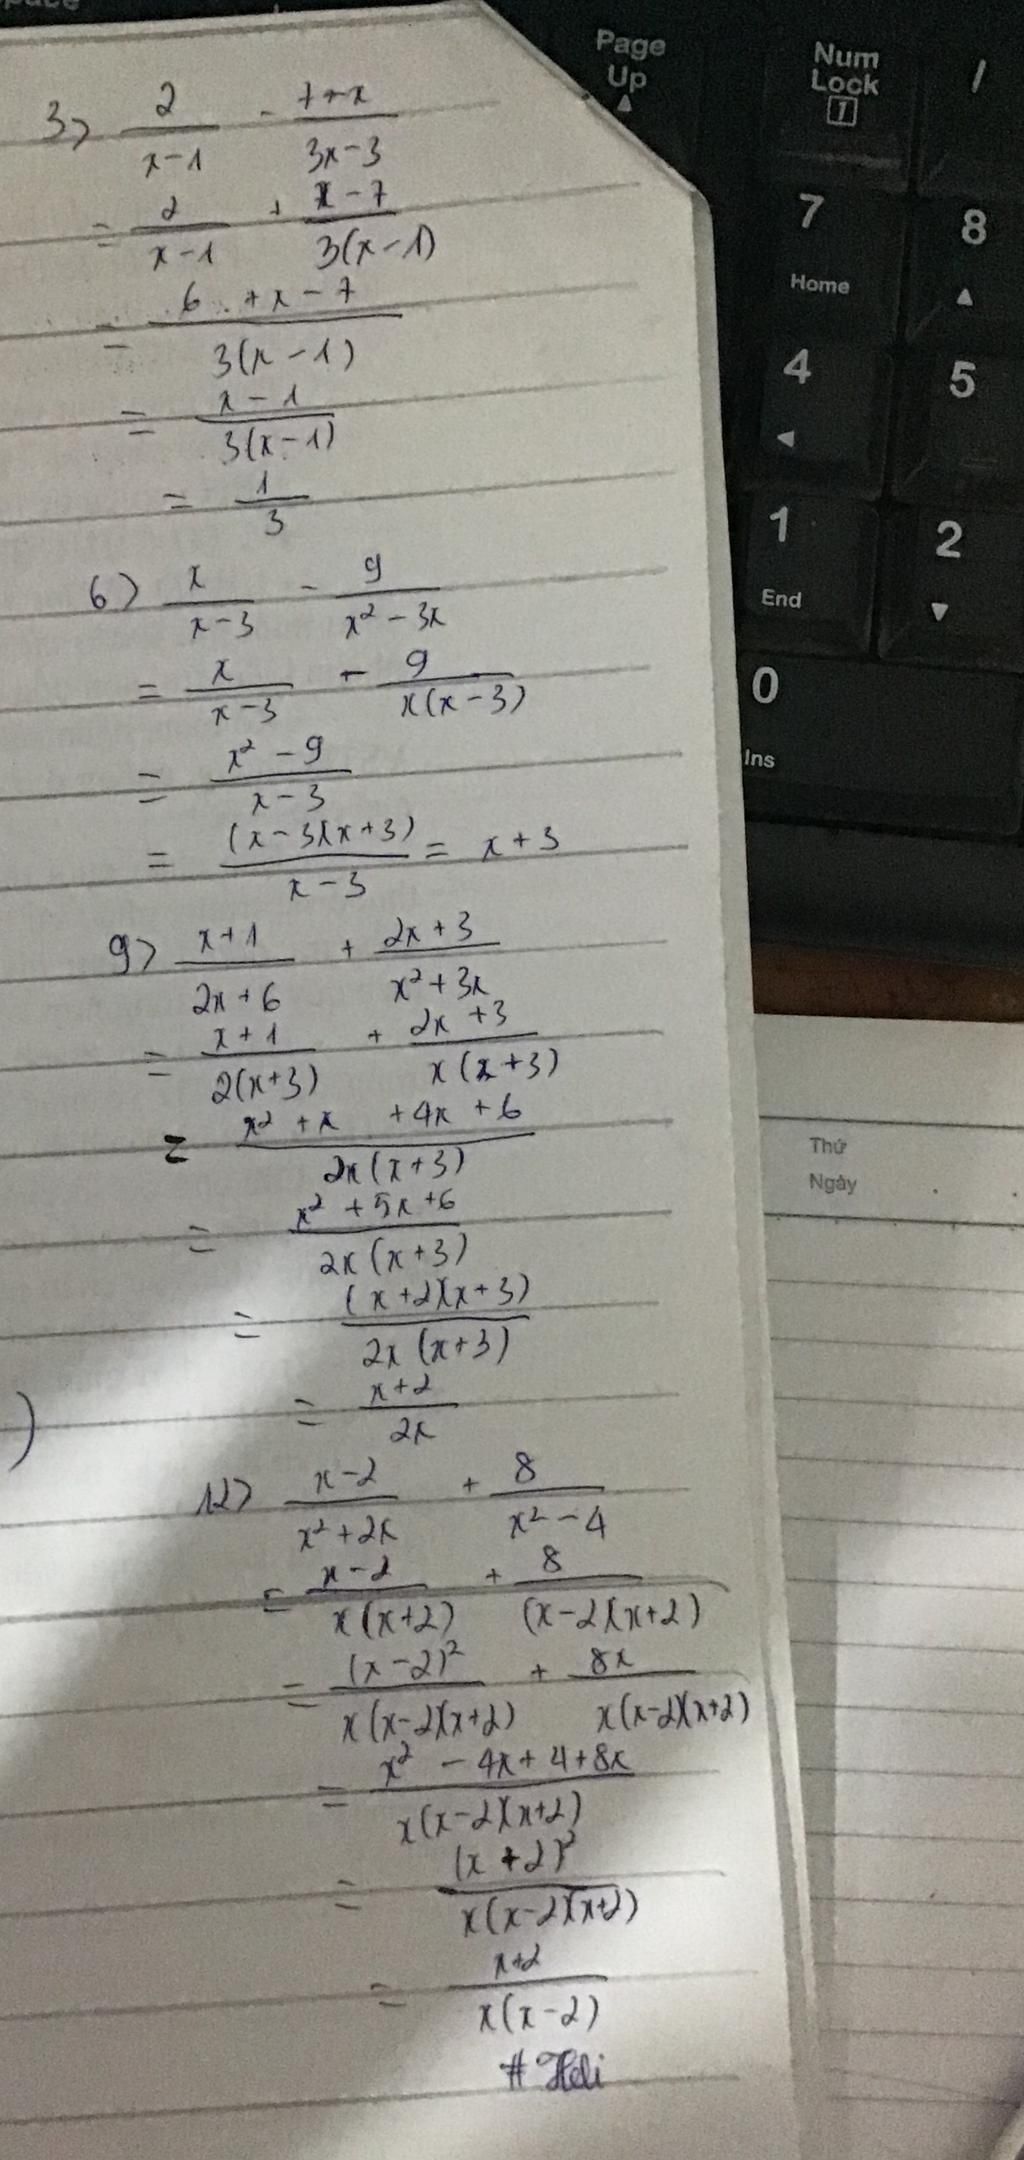 Page Up
Num Lock
1
/
7 Home
8
4
5
1 End
2
0 Ins
3> 2/(x-1) - (7-x)/(3x-3)
= 2/(x-1) + (x-7)/(3(x-1))
= (6 + x - 7)/(3(x-1))
= (x-1)/(3(x-1))
= 1/3
6> x/(x-3) - 9/(x² - 3x)
= x/(x-3) - 9/(x(x-3))
= (x² - 9)/(x-3)
= ((x-3)(x+3))/(x-3) = x+3
9> (x+1)/(2x+6) + (2x+3)/(x²+3x)
= (x+1)/(2(x+3)) + (2x+3)/(x(x+3))
= (x² + x + 4x + 6)/(2x(x+3))
= (x² + 5x + 6)/(2x(x+3))
= ((x+2)(x+3))/(2x(x+3))
= (x+2)/(2x)
12> (x-2)/(x²+2x) + 8/(x²-4)
= (x-2)/(x(x+2)) + 8/((x-2)(x+2))
= (x-2)²/(x(x-2)(x+2)) + 8x/(x(x-2)(x+2))
= (x² - 4x + 4 + 8x)/(x(x-2)(x+2))
= (x+2)²/(x(x-2)(x+2))
= (x+2)/(x(x-2))
# Heli
Thứ
Ngày